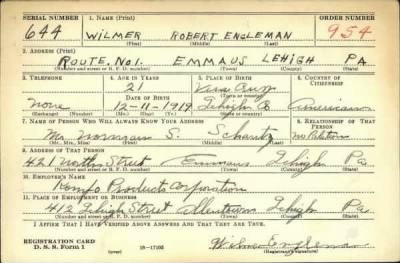 SERIAL NUMBER 1. NAME (Print) ORDER NUMBER
644 WILMER ROBERT ENGLEMAN 954
(First) (Middle) (Last)
2. ADDRESS (Print)
ROUTE, NO.1. EMMAUS LEHIGH PA
(Number and street or R. F. D. number) (Town) (County) (State)
3. TELEPHONE 4. AGE IN YEARS 5. PLACE OF BIRTH 6. COUNTRY OF CITIZENSHIP
21 Vera Cruz
DATE OF BIRTH (Town or county)
None 12-11-1919 Lehigh Co American
(Exchange) (Number) (Mo.) (Day) (Yr.) (State or country)
7. NAME OF PERSON WHO WILL ALWAYS KNOW YOUR ADDRESS 8. RELATIONSHIP OF THAT PERSON
Mr. Norman S. Schantz No Relation
(Mr., Mrs., Miss) (First) (Middle) (Last)
9. ADDRESS OF THAT PERSON
421 North Street Emmaus Lehigh Pa.
(Number and street or R. F. D. number) (Town) (County) (State)
10. EMPLOYER'S NAME
Products Corporation
11. PLACE OF EMPLOYMENT OR BUSINESS
412 Lehigh Street Allentown Lehigh Pa.
(Number and street or R. F. D. number) (Town) (County) (State)
I AFFIRM THAT I HAVE VERIFIED ABOVE ANSWERS AND THAT THEY ARE TRUE.
REGISTRATION CARD
D. S. S. Form 1 16-17105 Wilmer Engleman
(Registrant's signature)